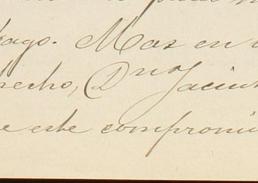 pago. Mas en
recho, Dn Jacin
e este compromi